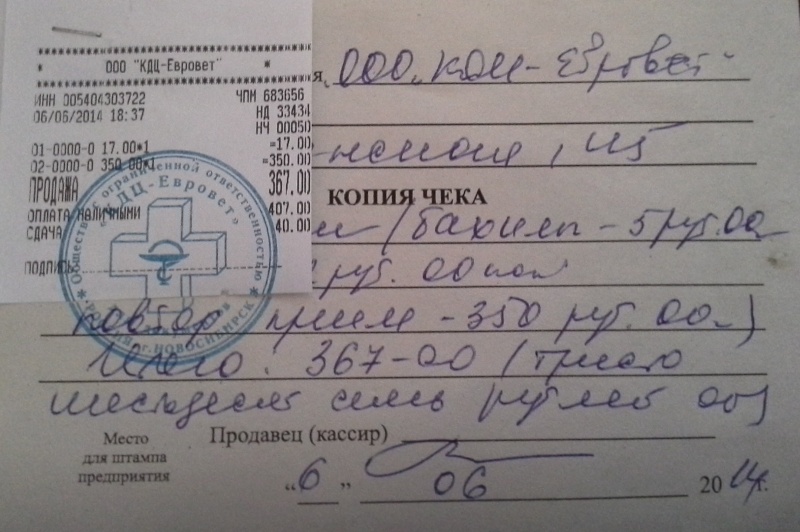 ООО "КДЦ-Евровет"
ИНН 005404303722 ЧПМ 683656
06/06/2014 18:37 НД 33434
НЧ 00050
01-0000-0 17.00*1 =17.00
02-0000-0 350.00*1 =350.00
ПРОДАЖА 367.00
ОПЛАТА НАЛИЧНЫМИ 407.00
СДАЧА 40.00
ПОДПИСЬ
Общество с ограниченной ответственностью
«КДЦ-Евровет»
г.НОВОСИБИРСК
ООО „КДЦ-Евровет"
КОПИЯ ЧЕКА
(бахилы - 5 руб. 00
руб. 00 коп
повтор прием - 350 руб. 00)
Итого: 367-00 (триста
шестьдесят семь рублей 00)
Место
для штампа
предприятия
Продавец (кассир)
„6" 06 2014г.